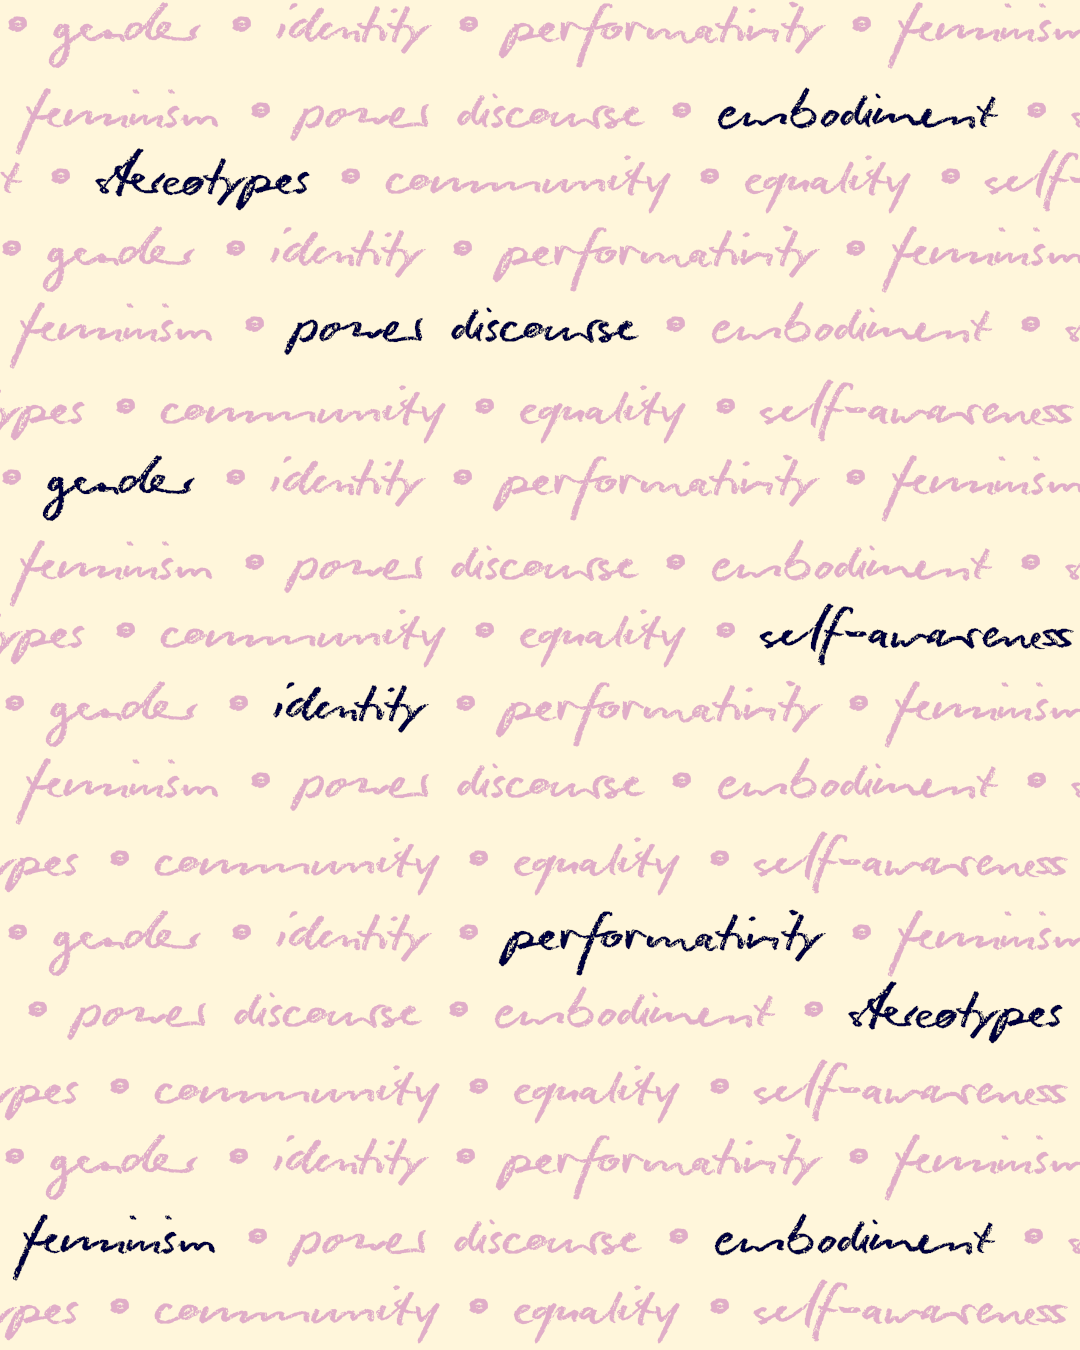 • gender • identity • performativity • feminism
feminism • power discourse • embodiment • s
t • stereotypes • community • equality • self-
• gender • identity • performativity • feminism
feminism • power discourse • embodiment • s
ypes • community • equality • self-awareness
• gender • identity • performativity • feminism
feminism • power discourse • embodiment • s
ypes • community • equality • self-awareness
• gender • identity • performativity • feminism
feminism • power discourse • embodiment • s
ypes • community • equality • self-awareness
• gender • identity • performativity • feminism
• power discourse • embodiment • stereotypes
ypes • community • equality • self-awareness
• gender • identity • performativity • feminism
feminism • power discourse • embodiment • s
ypes • community • equality • self-awareness